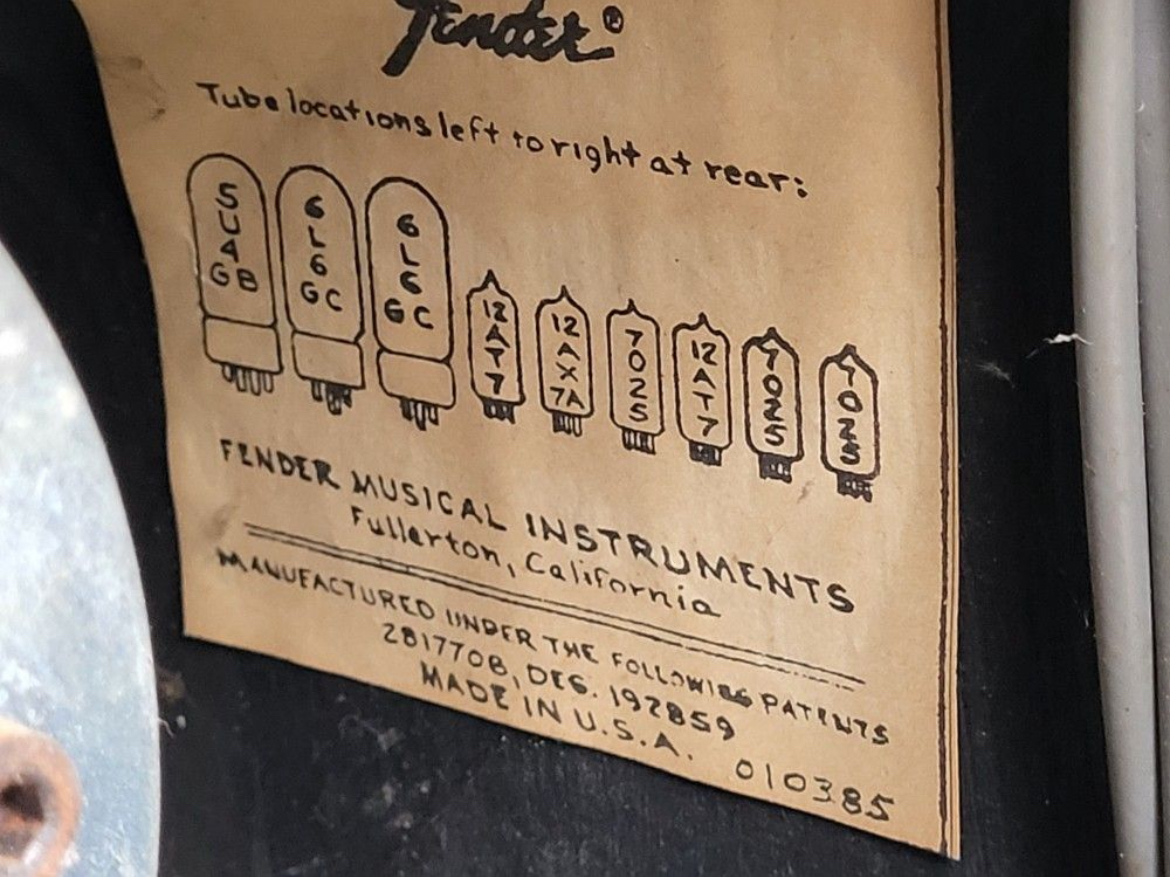 Fender®
Tube locations left to right at rear:
5U4GB 6L6GC 6L6GC 12AT7 12AX7A 7025 12AT7 7025 7025
FENDER MUSICAL INSTRUMENTS
Fullerton, California
MANUFACTURED UNDER THE FOLLOWING PATENTS
2817708, DES. 192859
MADE IN U.S.A.
010385